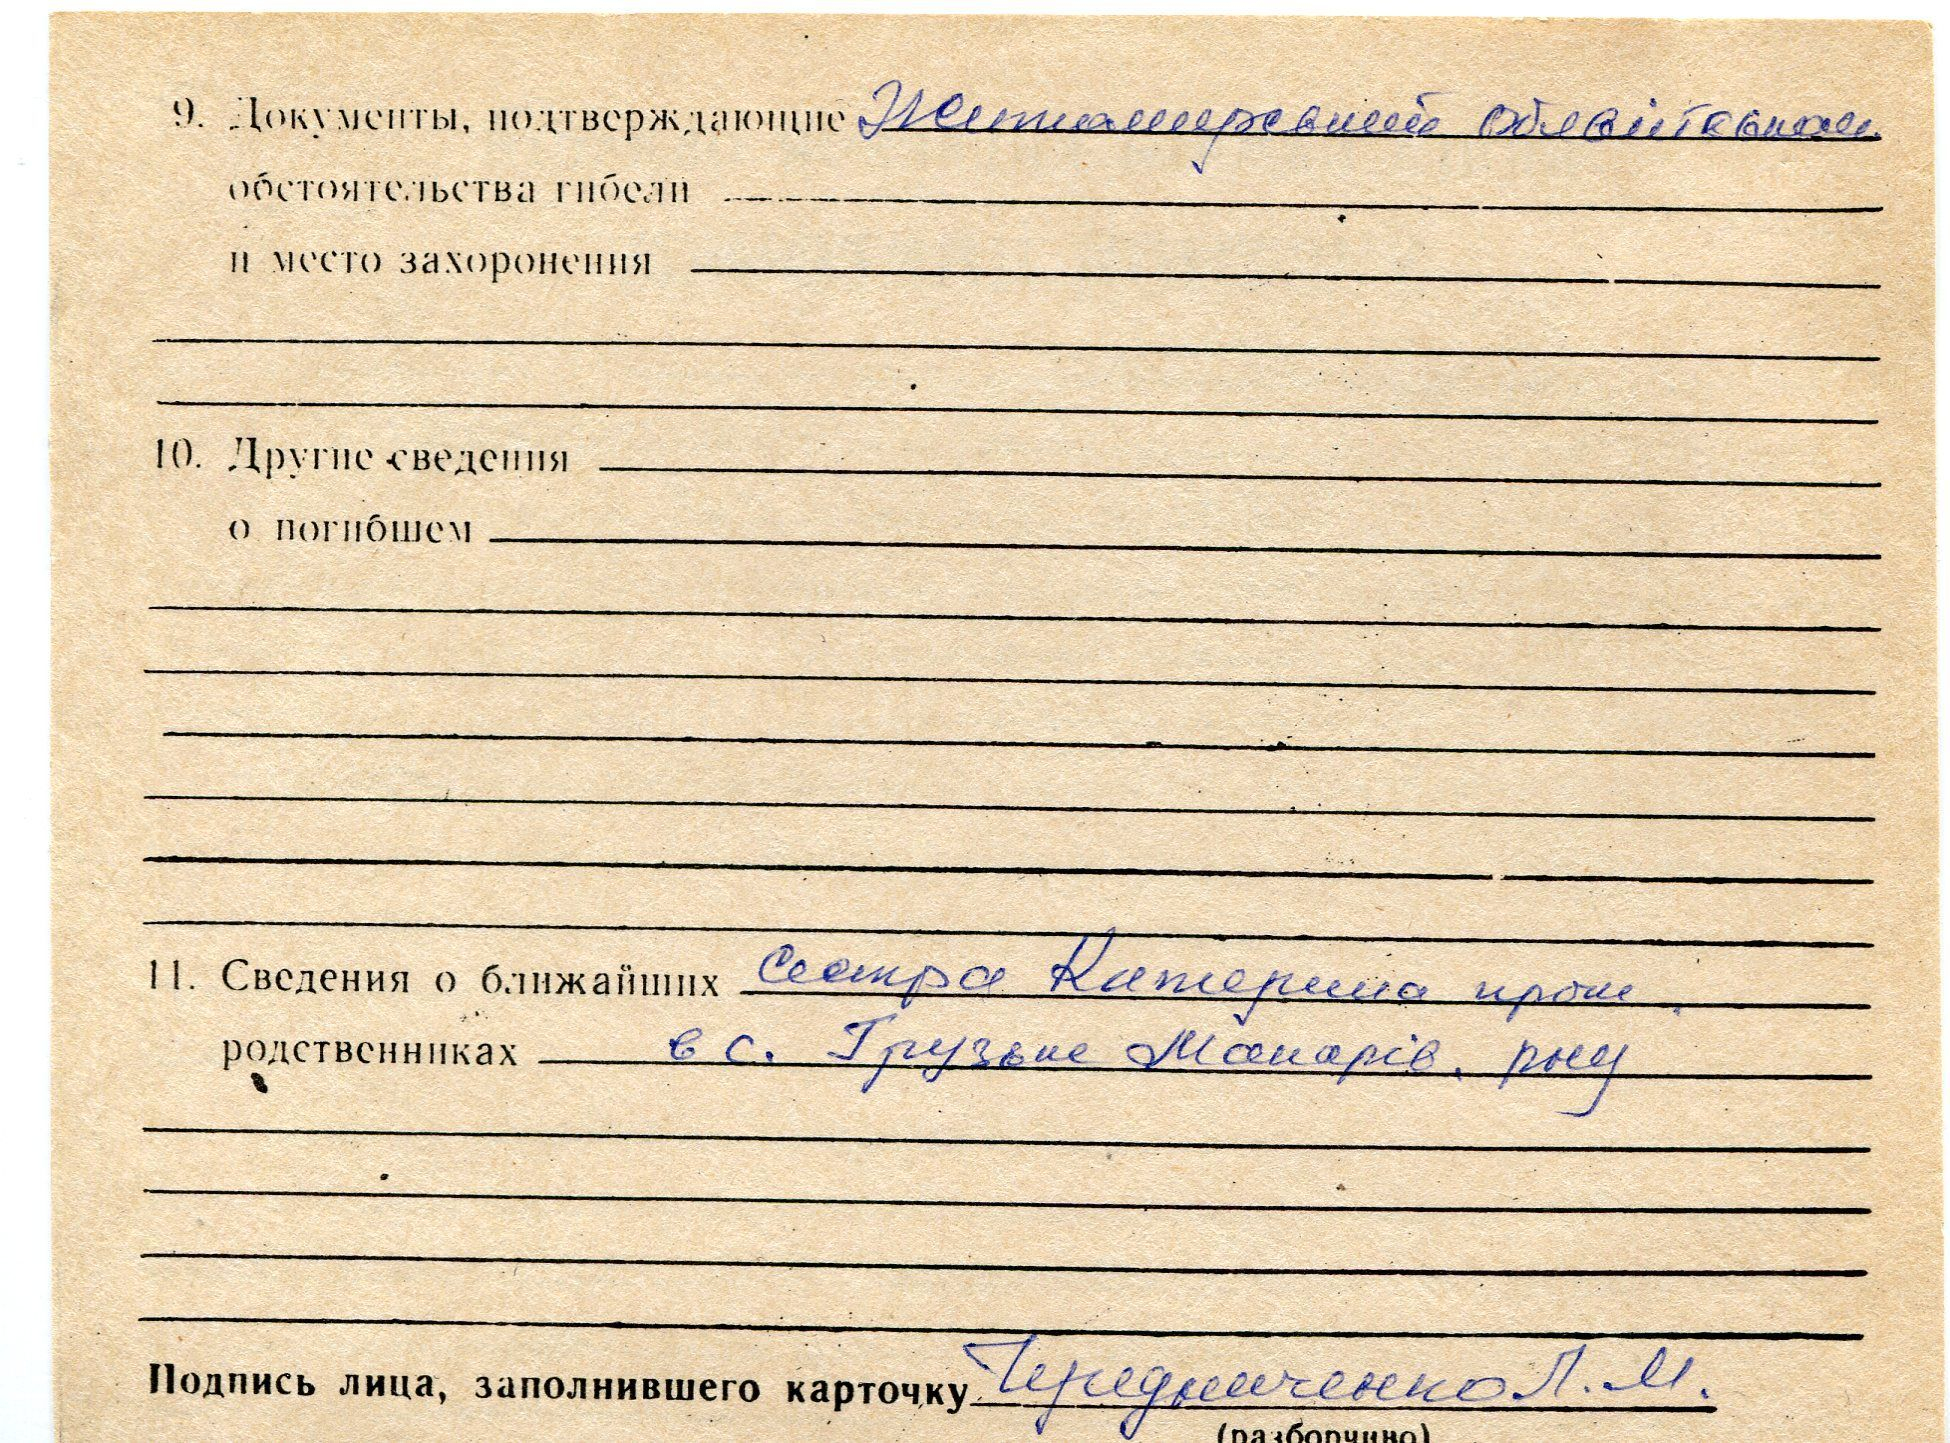 9. Документы, подтверждающие Житомирський облвійськком.
обстоятельства гибели
и место захоронения
10. Другие сведения
о погибшем
11. Сведения о ближайших сестра Катерина прож.
родственниках в с. Грузьке Макарів. рну
Подпись лица, заполнившего карточку Чередниченко Л. М.
(разборчиво)